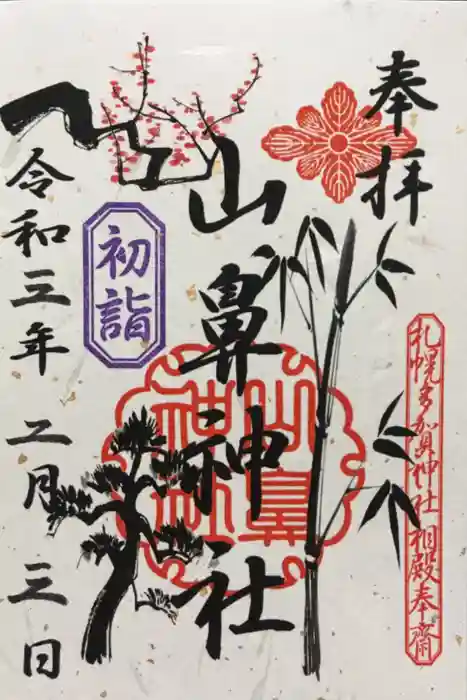 奉拝
山鼻神社
初詣
令和三年 二月三日
山鼻
神社
札幌多賀神社 相殿奉齋